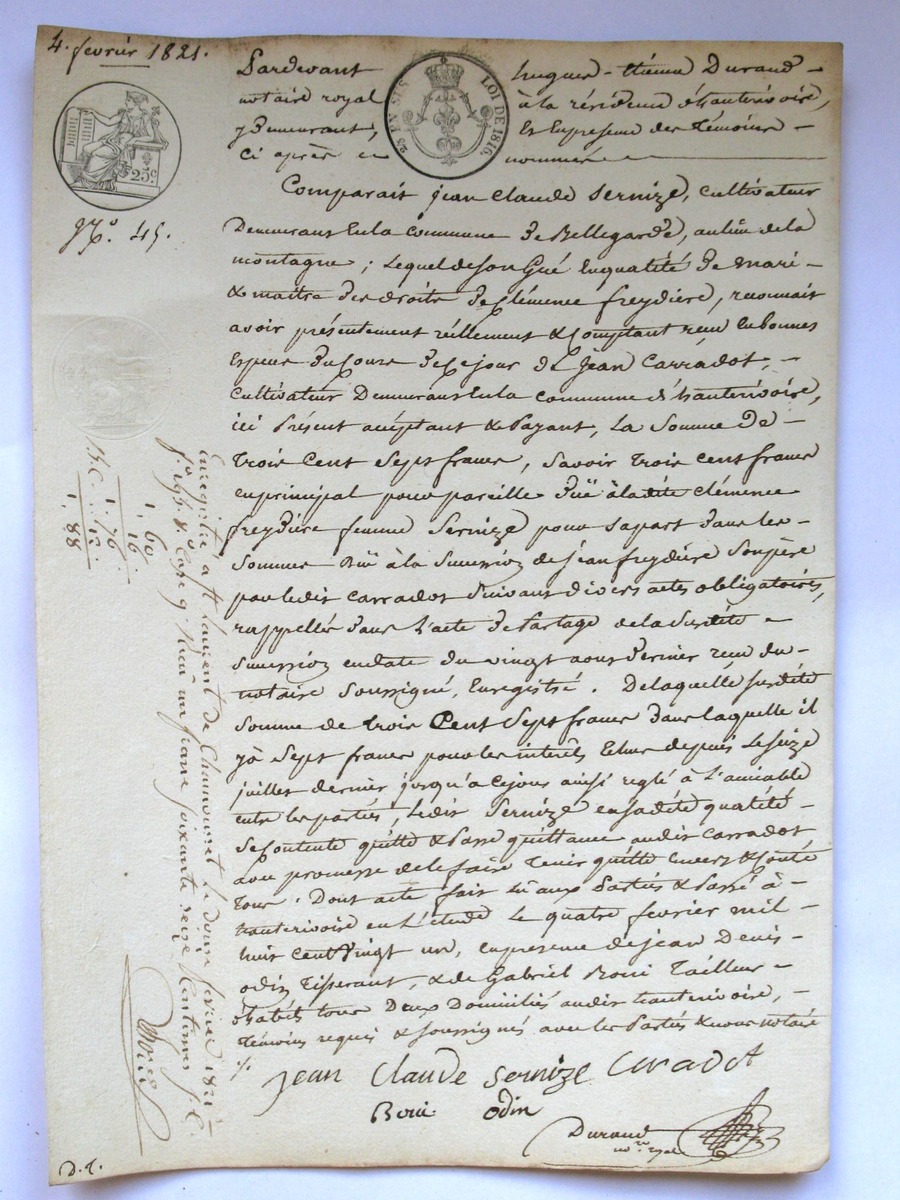 4. fevrier 1821.
25 EN SUS
LOI DE 1816.
25c.
No. 45.
Pardevant hugues-Etienne Durand
notaire royal à la résidence d'hauterivoire,
y Demeurant, & En presence des Témoins
ci après nommés
Comparait jean Claude Sernize, cultivateur
Demeurant En la commune de Bellegarde, au lieu de la
montagne ; Lequel de son Gré En qualité de mari
& maitre des droits de Clémence freydiere, reconnait
avoir présentement réellement & Comptant reçu En bonnes
Especes du Cours de ce jour de Jean Carradot,
Cultivateur Demeurant En la commune d'hauterivoire,
ici Présent acceptant & Payant, La Somme De
Trois Cent Sept francs, Savoir Trois cent francs
en principal pour pareille düe à la dite Clémence
freydiere femme Sernize pour sa part dans les
Sommes düe à la Succession de jean freydiere Son père
par le dit Carradot Suivant divers actes obligatoires,
rappellés dans L'acte de Partage de la Susdite
Succession en date du vingt aout dernier reçu du
notaire Soussigné, Enregistré. De laquelle susdite
Somme de trois Cent Sept francs dans laquelle il
y a Sept francs pour les interêts Echus depuis Le Seize
juillet dernier jusqu'a ce jour ainsi reglé à L'amiable
Entre les parties, Ledit Sernize en sa dite qualité
Se Contente quitte & Passe quittance audit Carradot
avec promesse de le faire Tenir quitte Envers & Contre
Tous. Dont acte fait lû aux Parties & Passé à
hauterivoire en L'étude Le quatre fevrier mil
huit Cent vingt un, en presence de jean Denis
odin Tisserant, & de Gabriel Boni Tailleur
d'habits tous Deux Domiciliés audit hauterivoire,
Témoins requis & Soussignés avec les Parties & nous notaire
jean Claude Sernize Caradot
Boni odin
Durand
nore. royal
Enregistré à St. Laurent de Chamousset le douze fevrier 1821
fo. 195 Vo. Case 9 reçu un franc soixante seize Centimes
1, 60
16
1, 76
12
1, 88
D. t.